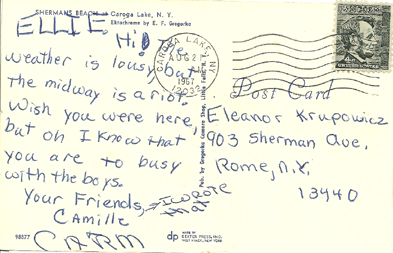 SHERMANS BEACH — Caroga Lake, N. Y.
Ektachrome by E. F. Gregorka
ELLIE,
Hi! The
weather is lousy but
the midway is a riot.
Wish you were here
but oh I know that
you are to busy
with the boys.
Your Friends,
Camille
CARM
I wrote
that
CAROGA LAKE, NY
AUG 21
AM
1967
12032
4c
Post Card
Pub. by Gregorka Camera Shop, Little Falls, N. Y.
Eleanor Krupowicz
903 Sherman Ave.
Rome, N.Y.
13440
98077
dp
MADE BY
DEXTER PRESS, INC.
WEST NYACK, NEW YORK